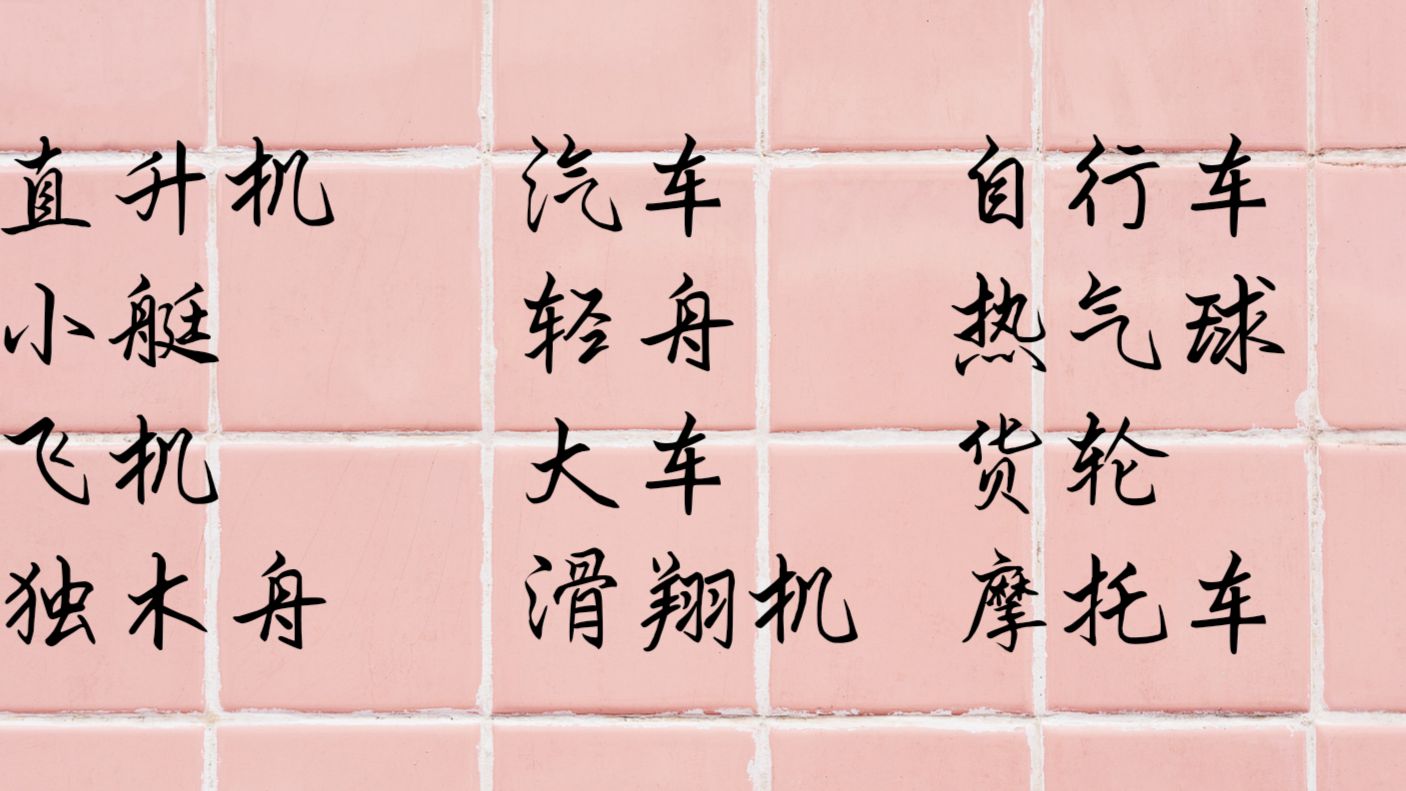 直升机 汽车 自行车
小艇 轻舟 热气球
飞机 大车 货轮
独木舟 滑翔机 摩托车